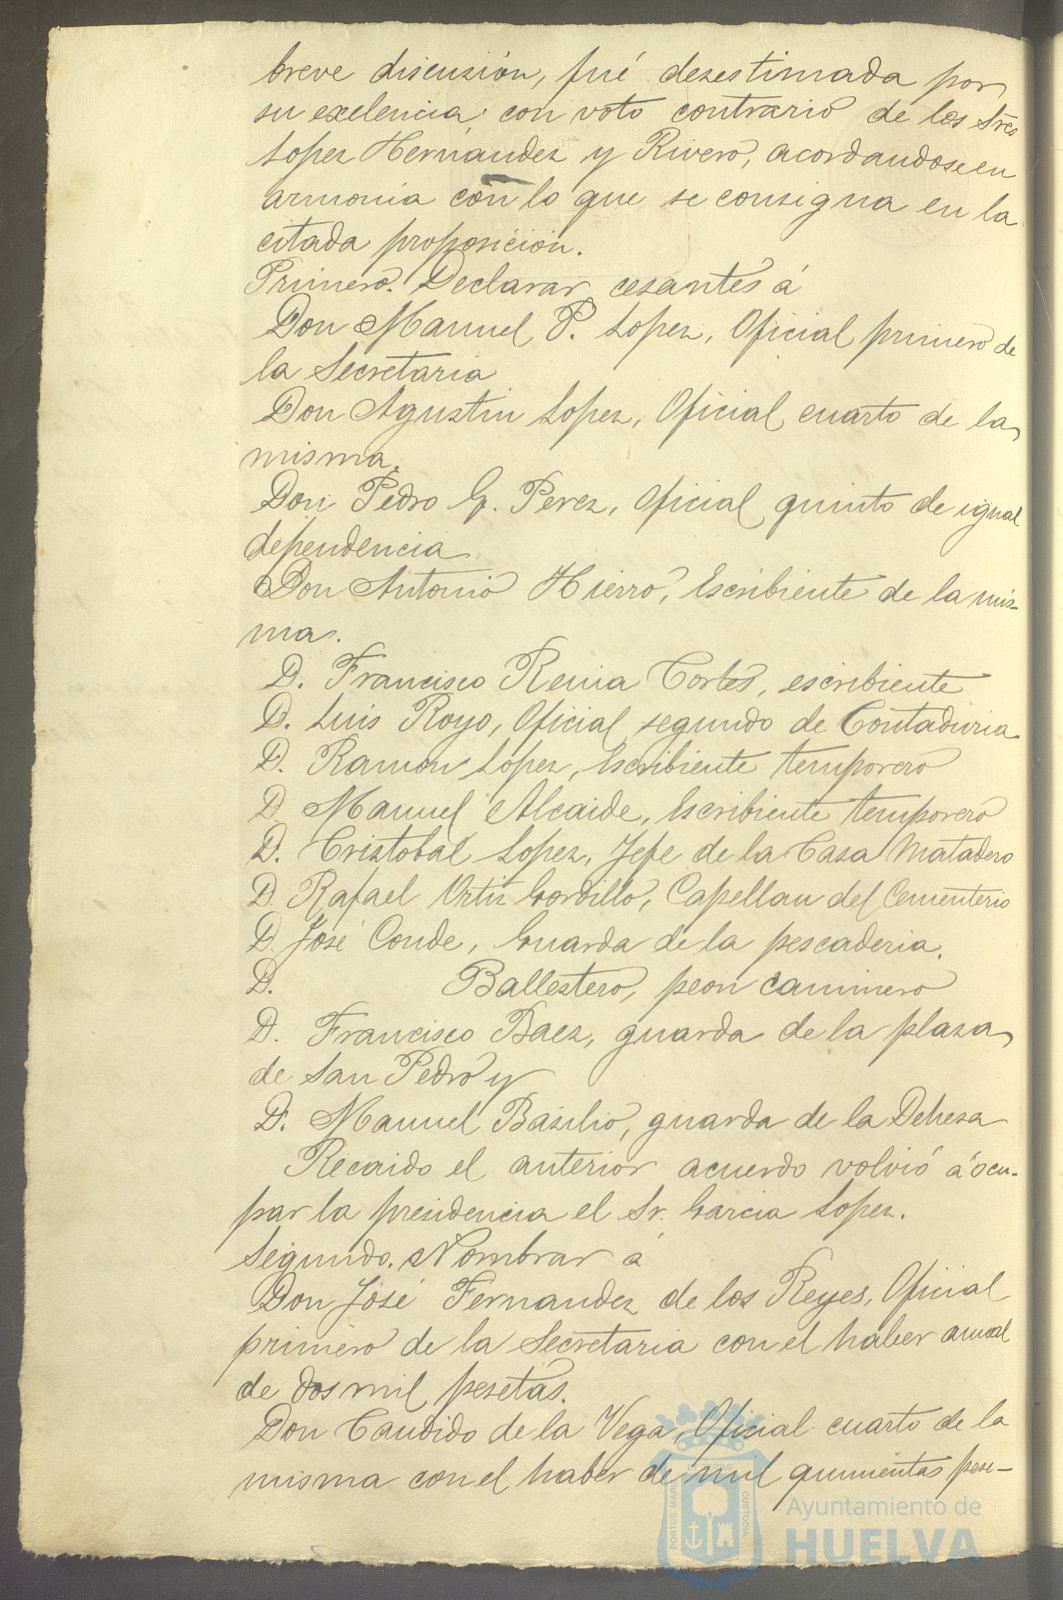 breve discusión, fué desestimada por
su exelencia; con voto contrario de los Sres
Lopez Hernandez y Rivero, acordandose en
armonia con lo que se consigna en la
citada proposición.
Primero. Declarar cesantes á
Don Manuel P. Lopez, Oficial primero de
la Secretaria
Don Agustin Lopez, Oficial cuarto de la
misma.
Don Pedro G. Perez, Oficial quinto de igual
dependencia
Don Antonio Hierro, Escribiente de la mis-
ma.
D. Francisco Reina Cortés, escribiente
D. Luis Royo, Oficial segundo de Contaduria
D. Ramon Lopez, Escribiente temporero
D. Manuel Alcaide, Escribiente temporero
D. Cristobal Lopez, Jefe de la Casa Matadero
D. Rafael Ortiz Gordillo, Capellan del Cementerio
D. José Conde, Guarda de la pescaderia.
D. Ballestero, peon caminero
D. Francisco Baez, guarda de la plaza
de San Pedro y
D. Manuel Basilio, guarda de la Dehesa
Recaido el anterior acuerdo volvió á ocu-
par la presidencia el Sr. Garcia Lopez.
Segundo. Nombrar á
Don José Fernandez de los Reyes, Oficial
primero de la Secretaria con el haber anual
de dos mil pesetas.
Don Candido de la Vega, Oficial cuarto de la
misma con el haber de mil quinientas pese-
PORTUS MARIS CUSTODIA
Ayuntamiento de
HUELVA